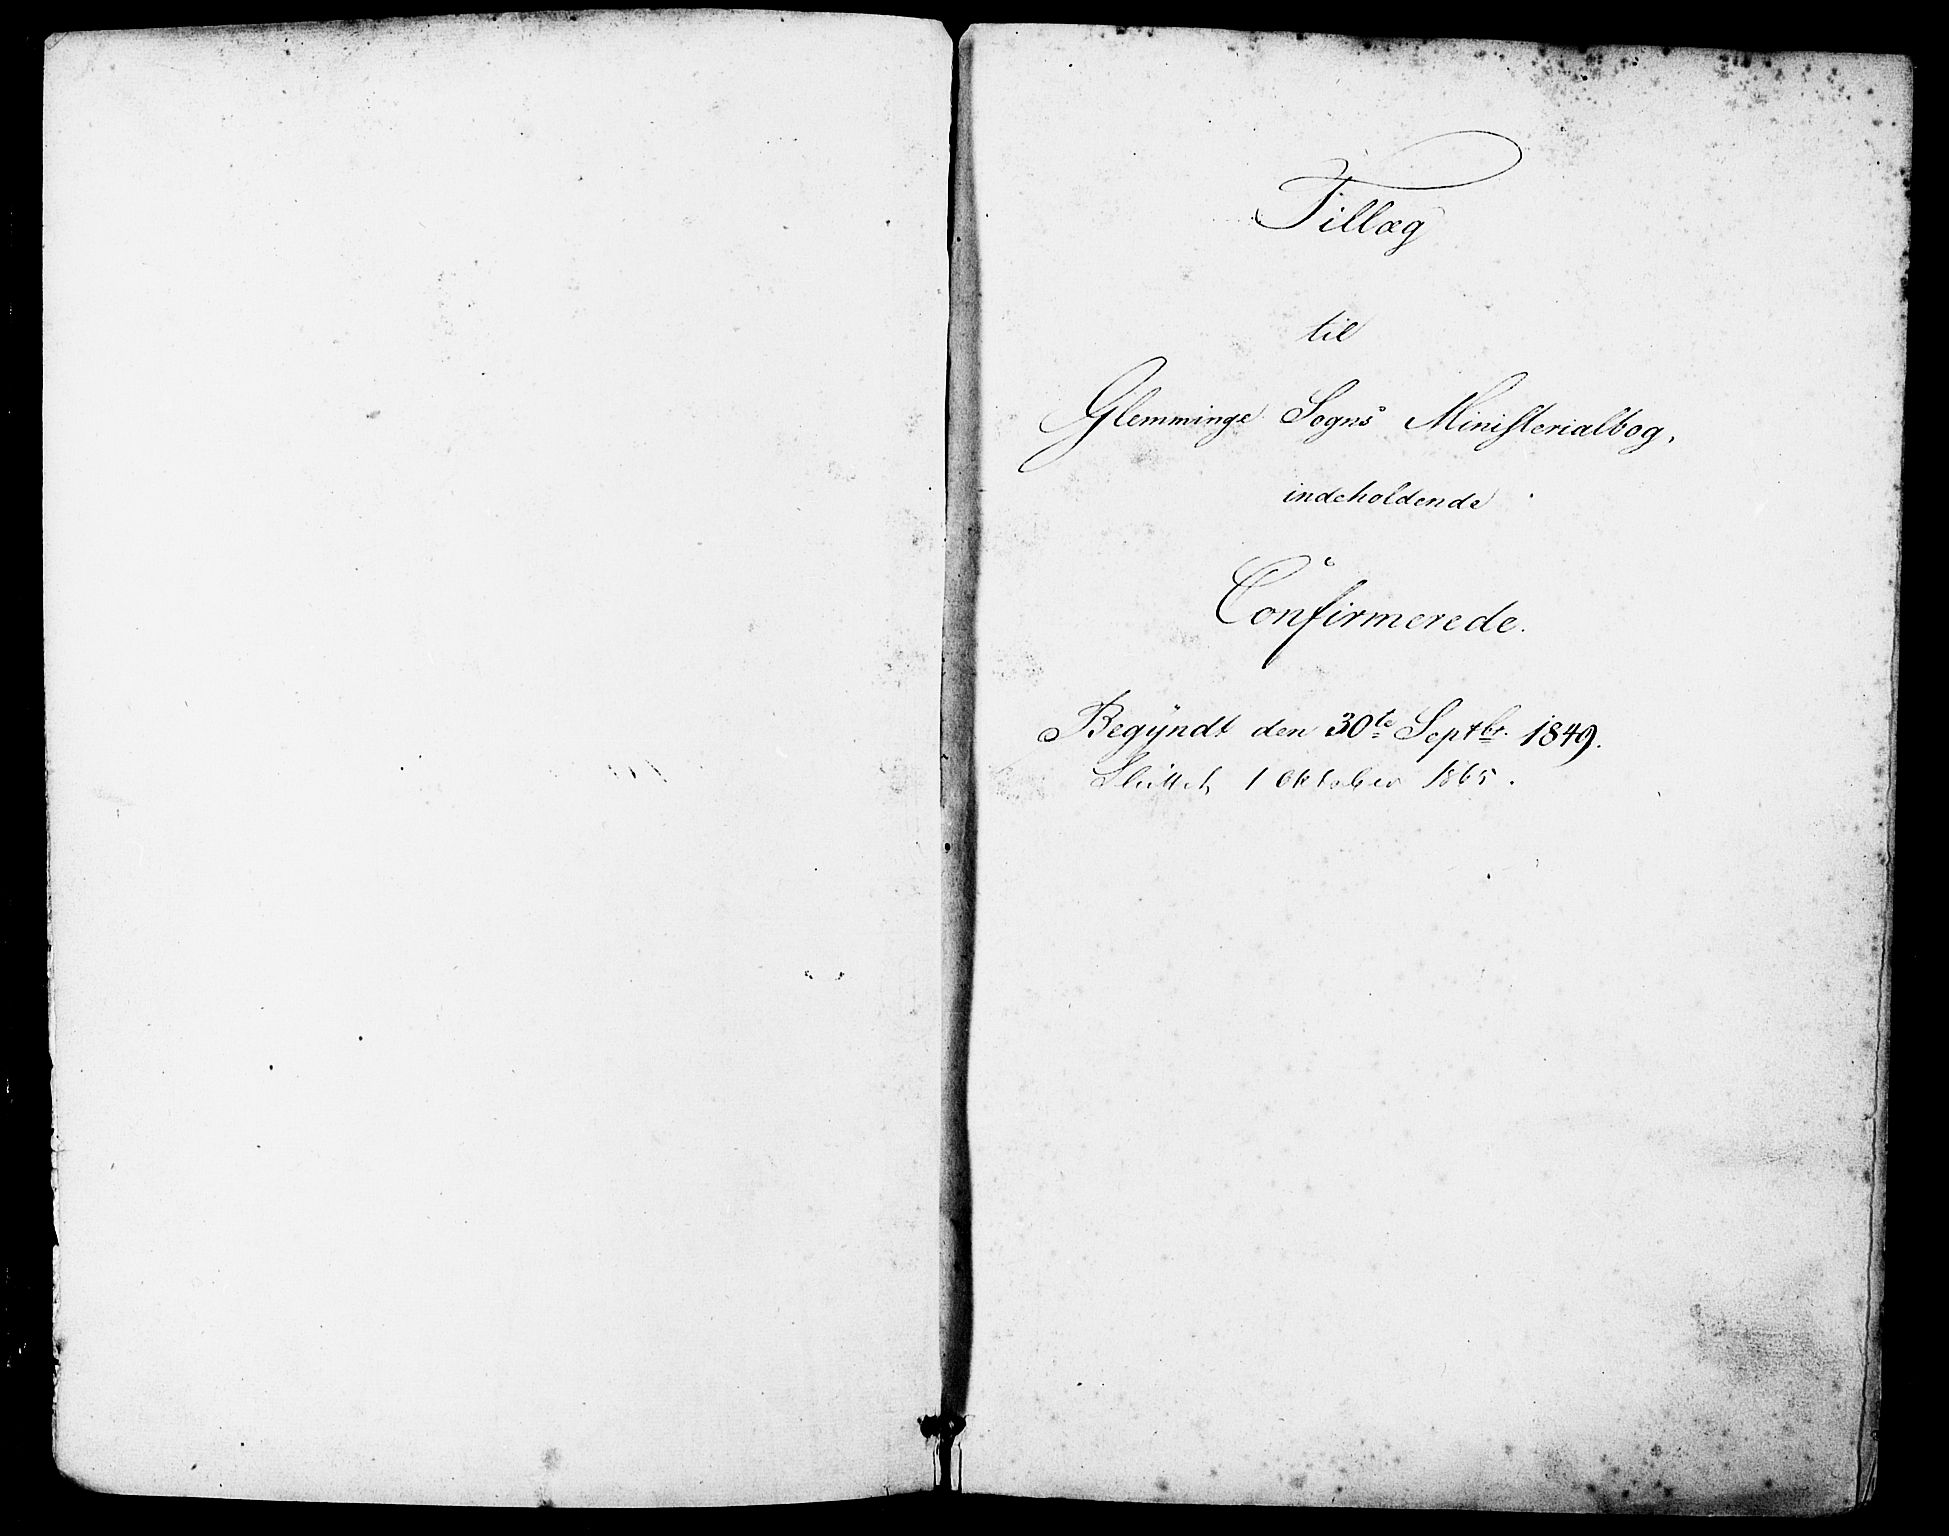 Tillæg
til
Glemminge Sogns Ministerialbog,
indeholdende
Confirmerede.
Begÿndt den 30te Septbr. 1849.
Sluttet 1 Oktober 1865.